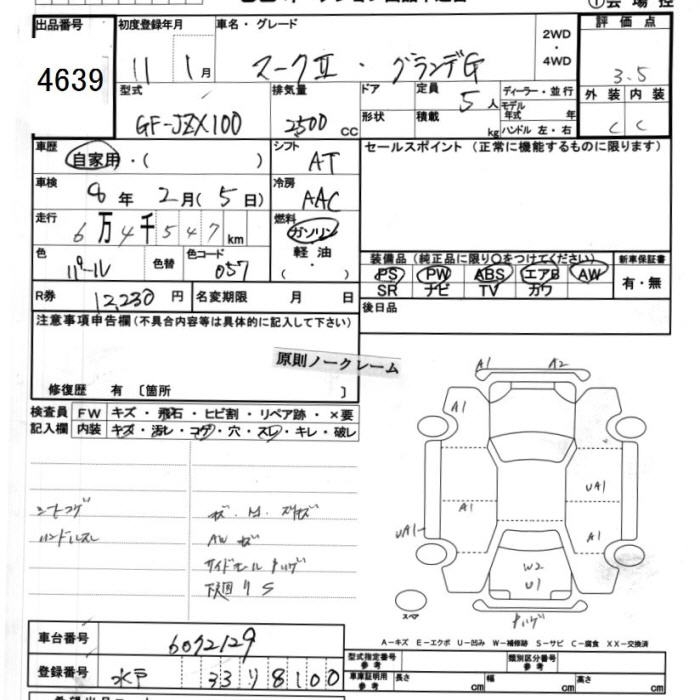 ①会場控
出品番号
4639
初度登録年月
11 1月
車名・グレード
マークⅡ・グランデG
2WD
・
4WD
評価点
3.5
外装 内装
C C
型式
GF-JZX100
排気量
2500 cc
ドア
形状
定員
5人
積載
kg
ディーラー・並行
モデル
年式 年
ハンドル 左・右
車歴
自家用・( )
シフト
AT
車検
8年 2月(5日)
冷房
AAC
走行
6万4千547km
燃料
ガソリン
・
軽油
・
( )
色
パール
色替
色コード
057
R券
12,230円
名変期限 月 日
セールスポイント(正常に機能するものに限ります)
装備品(純正品に限り○をつけてください)
PS PW ABS エアB AW
SR ナビ TV カワ
新車保証書
有・無
後日品
注意事項申告欄(不具合内容等は具体的に記入して下さい)
原則ノークレーム
修復歴 有〔箇所 〕
検査員
記入欄
FW キズ・飛石・ヒビ割・リペア跡・×要
内装 キズ・汚レ・コゲ・穴・スレ・キレ・破レ
シートコゲ
ハンドルスレ
AWキズ
下廻りS
A1 A2
A1
UA1
A1
UA1
A1
W2
U1
スペア
A－キズ E－エクボ U－凹み W－補修跡 S－サビ C－腐食 XX－交換済
車台番号
6072129
登録番号
水戸 33 リ 8100
型式指定番号
参考
類別区分番号
参考
車庫証明用
参考
長さ cm
幅 cm
高さ cm